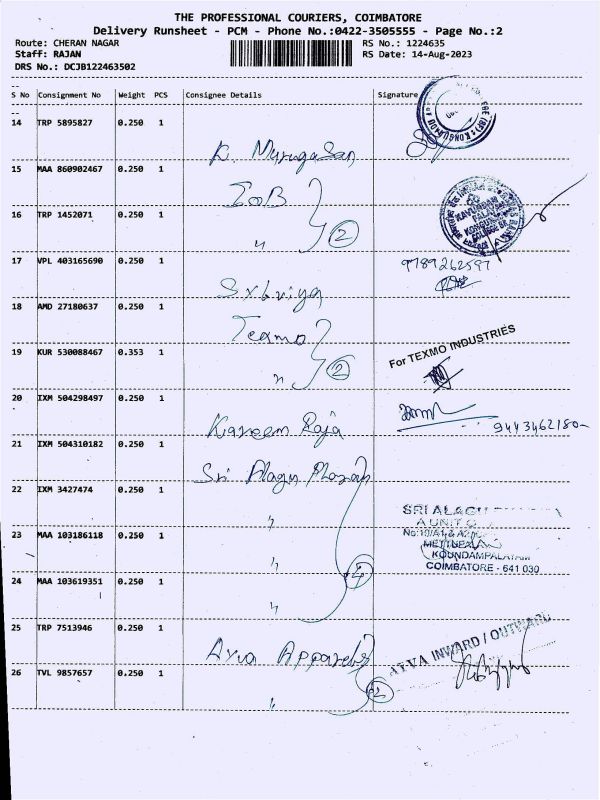 THE PROFESSIONAL COURIERS, COIMBATORE
Delivery Runsheet - PCM - Phone No.:0422-3505555 - Page No.:2
Route: CHERAN NAGAR RS No.: 1224635
Staff: RAJAN RS Date: 14-Aug-2023
DRS No.: DCJB122463502
--
S No Consignment No Weight PCS Consignee Details Signature
--
14 TRP 5895827 0.250 1
K. Murugasan
15 MAA 860902467 0.250 1
IOB
16 TRP 1452071 0.250 1
〃 2
17 VPL 403165690 0.250 1 9789262597
18 AMD 27180637 0.250 1
Texmo
For TEXMO INDUSTRIES
19 KUR 530088467 0.353 1
〃 2
20 IXM 504298497 0.250 1
Kareem Raja 9443462180
21 IXM 504310182 0.250 1
Sri Alagu
22 IXM 3427474 0.250 1
SRI ALAGU
A UNIT
〃
23 MAA 103186118 0.250 1
KOUNDAMPALAYAM
COIMBATORE - 641 030
〃 4
24 MAA 103619351 0.250 1
〃
25 TRP 7513946 0.250 1
AYVA INWARD / OUTWARD
Ayva Apparels
26 TVL 9857657 0.250 1
〃 2